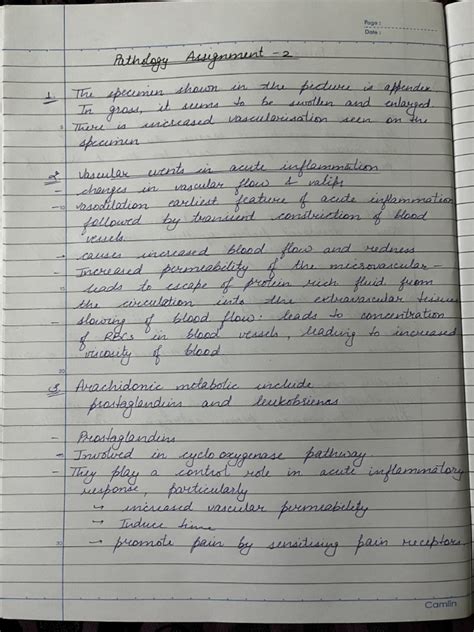 Page :
Date :
Pathology Assignment - 2
1. The specimen shown in the picture is appendix.
In gross, it seems to be swollen and enlarged.
There is increased vascularisation seen on the
specimen
2. Vascular events in acute inflammation
- changes in vascular flow &
- vasodilation earliest feature of acute inflammation
followed by transient constriction of blood
vessels.
→ causes increased blood flow and redness
- Increased permeability of the microvascular -
leads to escape of protein rich fluid from
the circulation into the extravascular tissue
- slowing of blood flow: leads to concentration
of RBCs in blood vessels, leading to increased
viscosity of blood
3. Arachidonic metabolic include
prostaglandins and
- Prostaglandins
- Involved in cyclooxygenase pathway.
- They play a control role in acute inflammatory
response, particularly
→ increased vascular permeability
→ Induce
→ promote pain by sensitising pain receptors
Camlin